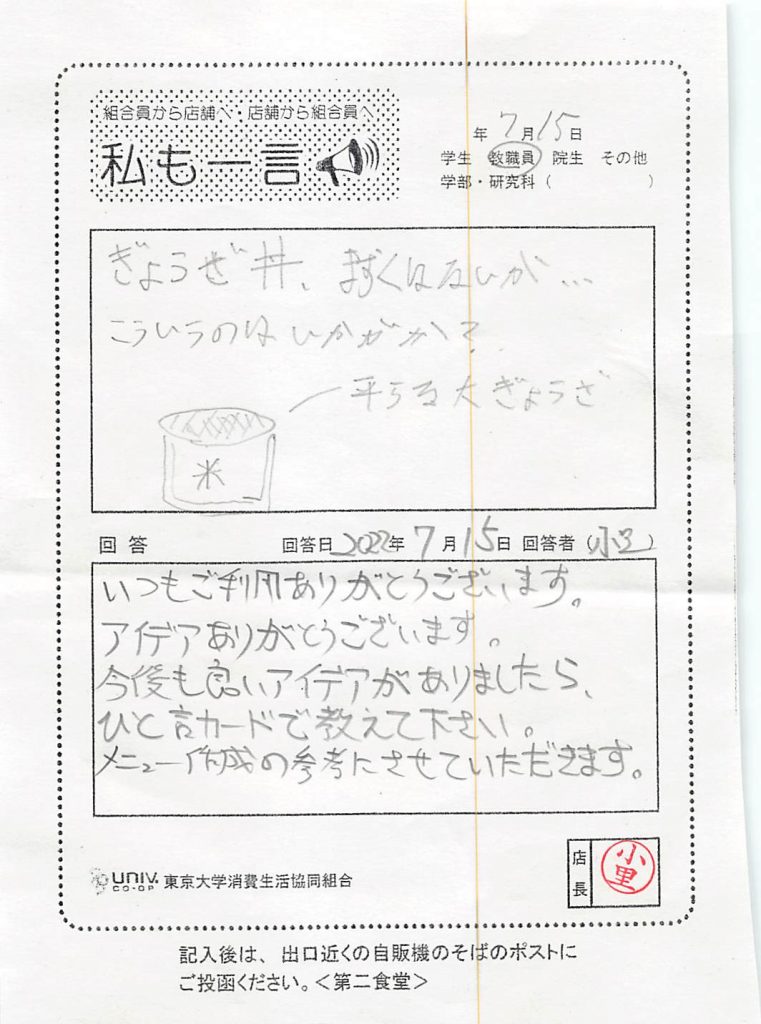 組合員から店舗へ・店舗から組合員へ
私も一言
年 7月15日
学生 教職員 院生 その他
学部・研究科( )
ぎょうざ丼、まずくはないが…
こういうのはいかがか?
平らな大ぎょうざ
米
回答 回答日 2022年 7月15日 回答者(小里)
いつもご利用ありがとうございます。
アイデアありがとうございます。
今後も良いアイデアがありましたら、
ひと言カードで教えて下さい。
メニュー作成の参考にさせていただきます。
UNIV. CO-OP 東京大学消費生活協同組合
店長
小里
記入後は、出口近くの自販機のそばのポストに
ご投函ください。<第二食堂>